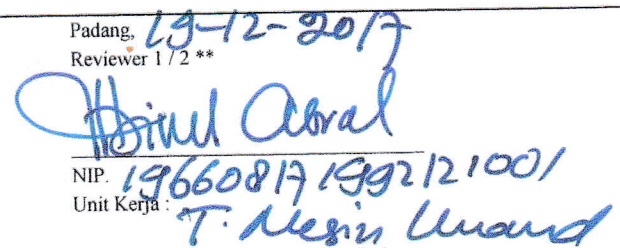 Padang, 19-12-2017
Reviewer 1 / 2 **
Hairul Abral
NIP. 196608171992121001
Unit Kerja : T. Mesin Unand